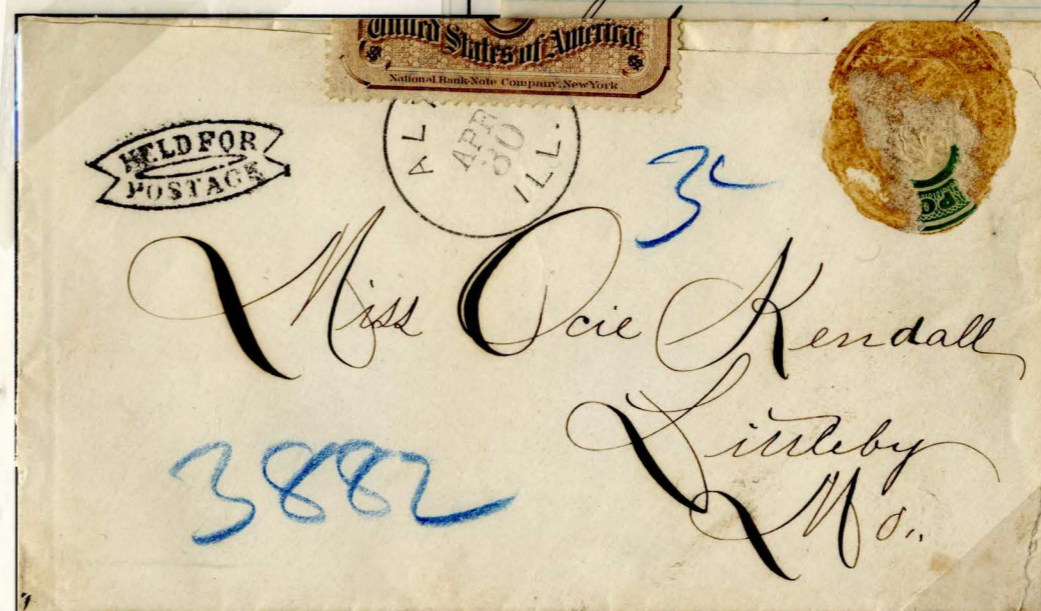 United States of America
National Bank Note Company, New York
HELD FOR
POSTAGE
APR
30
ILL.
3c
Miss Ocie Kendall
Littleby
Mo.
3882